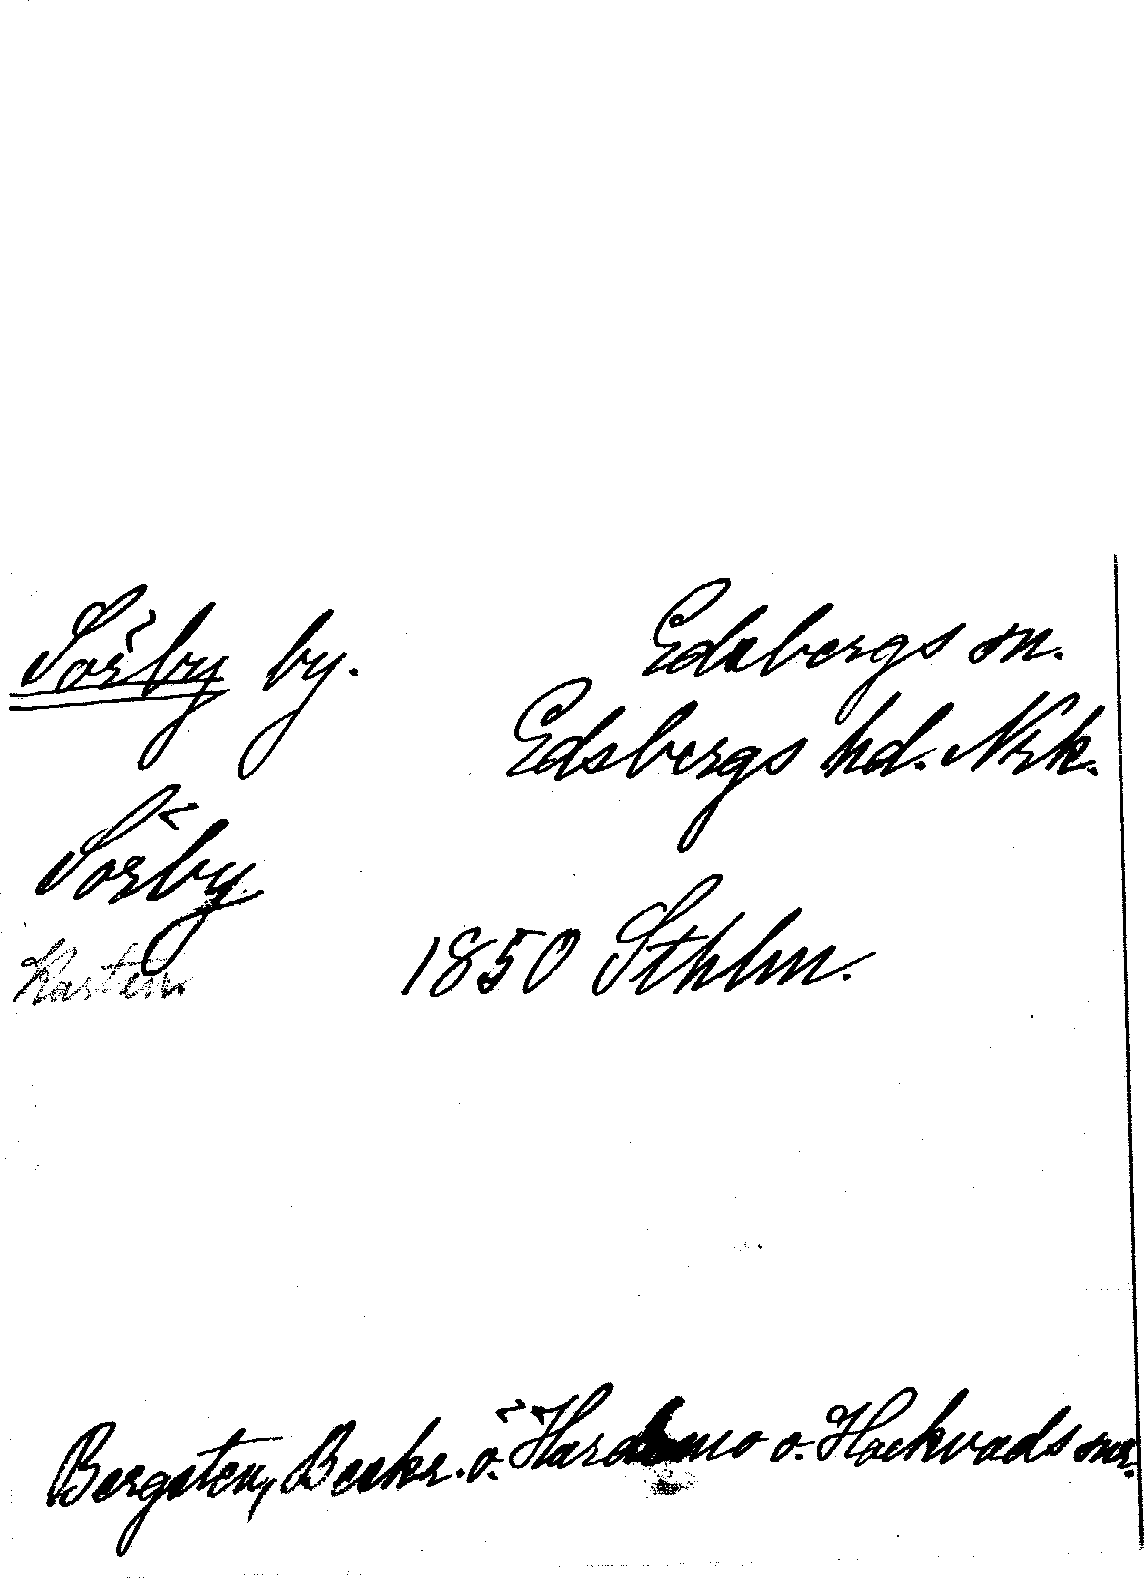 Sörby by. Edsbergs sn.
Edsbergs hd. Nrk.
Sörby
Karten 1850 Sthlm.
Bergsten, Beskr. ö. Hardemo o. Hackvads snr.